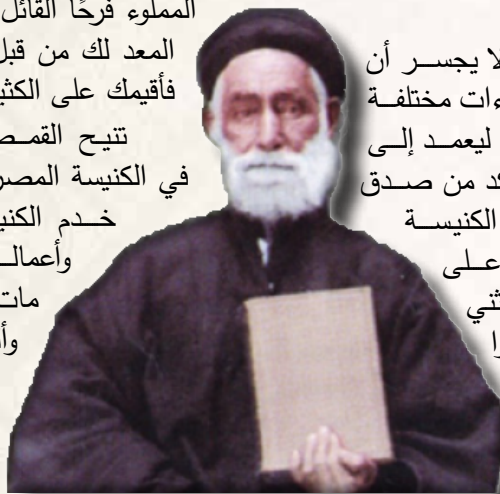 لا يجسر أن
ءات مختلفة
ليعمد إلى
كد من صدق
الكنيسة
على
ثني
را
المملوء فرحًا القائل
المعد لك من قبل
فأقيمك على الكثي
تنيح القمص
في الكنيسة المصر
خدم الكني
وأعمال
مات
وأ